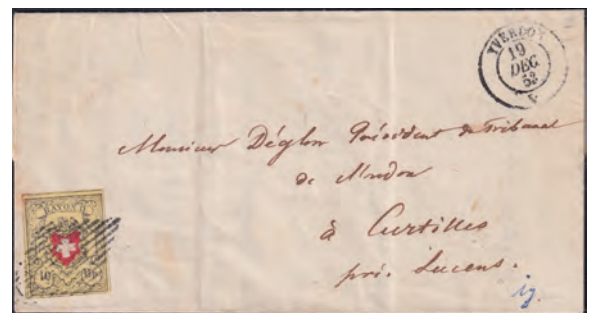 YVERDON
19
DEC
53
Monsieur Déglon Président du Tribunal
de Moudon
à Curtilles
près Lucens.
RAYON II
10